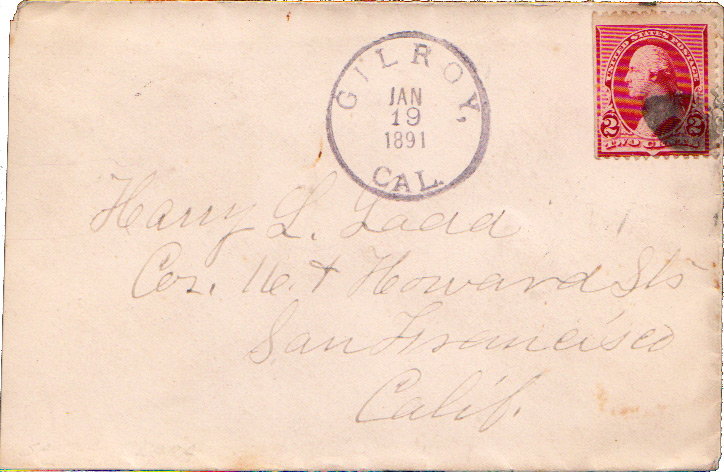 GILROY,
JAN
19
1891
CAL.
UNITED STATES POSTAGE
2 2
TWO CENTS
Harry L. Ladd
Cor. 16. & Howard Sts
San Francisco
Calif.